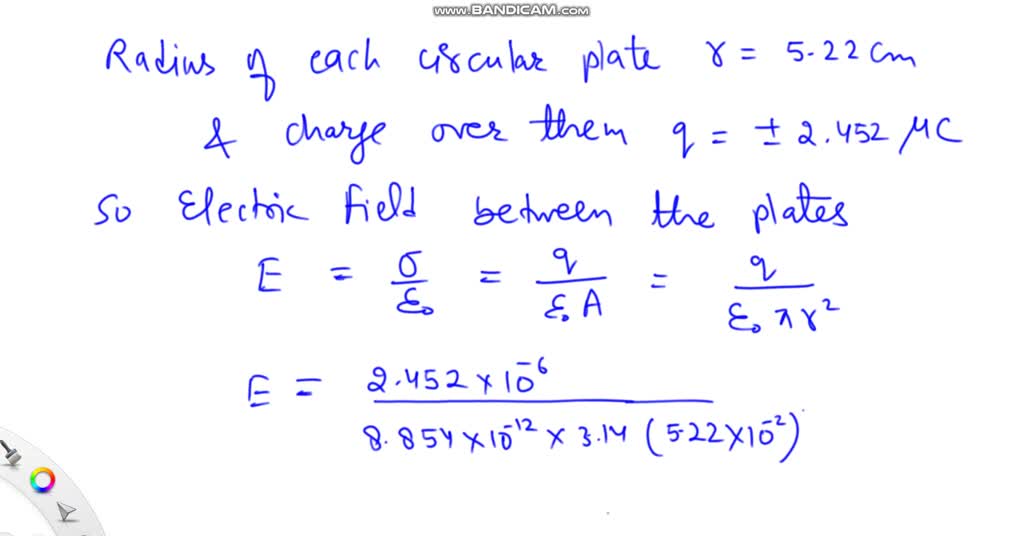 www.BANDICAM.com
Radius of each circular plate r = 5.22 cm
& charge over them q = ± 2.452 μC
So Electric field between the plates
E = σ/ε₀ = q/ε₀A = q/ε₀πr²
E = 2.452 × 10⁻⁶ / 8.854 × 10⁻¹² × 3.14 (5.22 × 10⁻²)